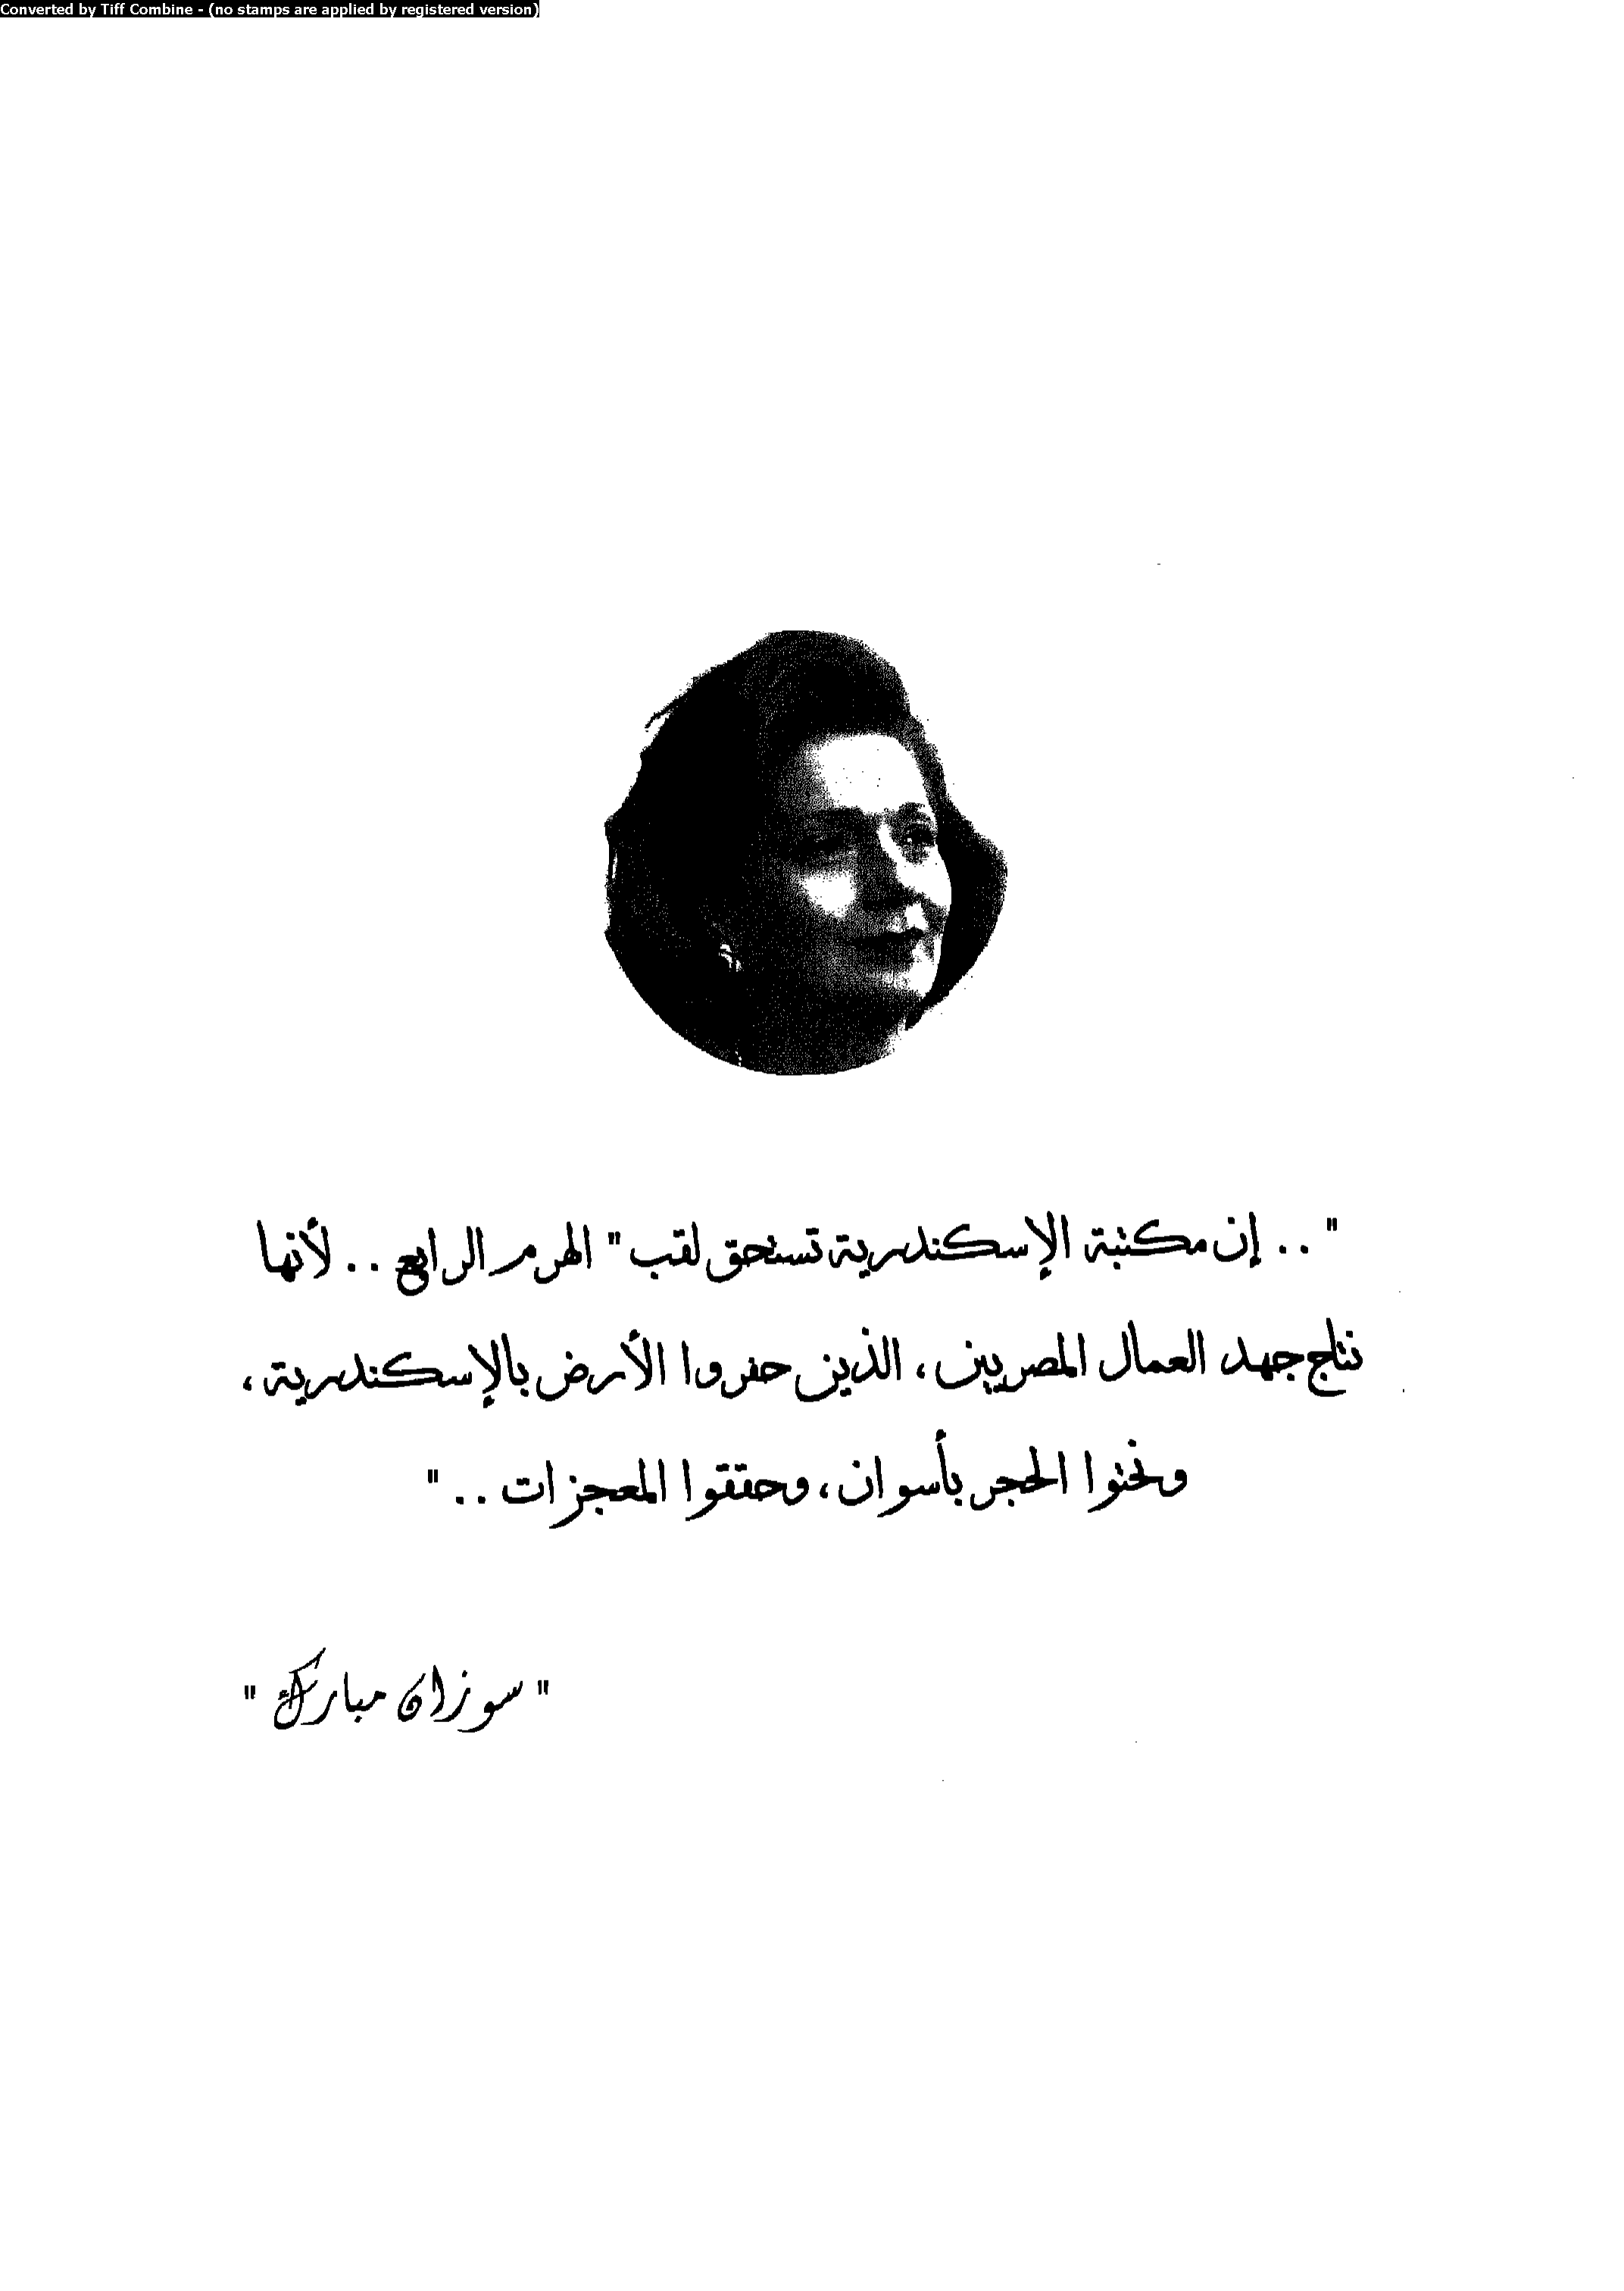 Converted by Tiff Combine - (no stamps are applied by registered version)
" .. إن مكتبة الإسكندرية تستحق لقب " الهرم الرابع .. لأنها
نتاج جهد العمال المصريين ، الذين حفروا الأرض بالإسكندرية ،
ونحتوا الحجر بأسوان ، وحققوا المعجزات .. "
" سوزان مبارك "